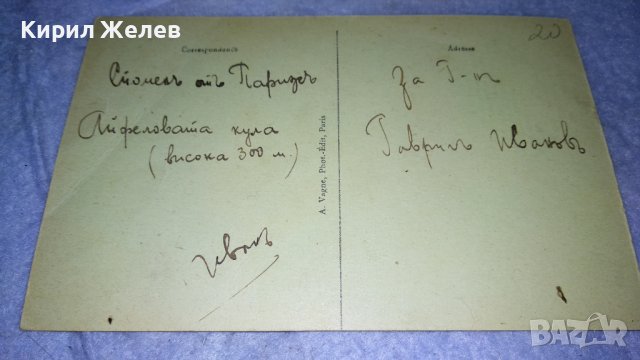 Кирил Желев
Correspondance
Споменъ отъ Парижъ
Айфеловата кула
(висока 300 м.)
Иванъ
A. Vagne, Phot.-Edit, Paris
20
Adresse
За Г-нъ
Гаврилъ Ивановъ
BAZAR
bg